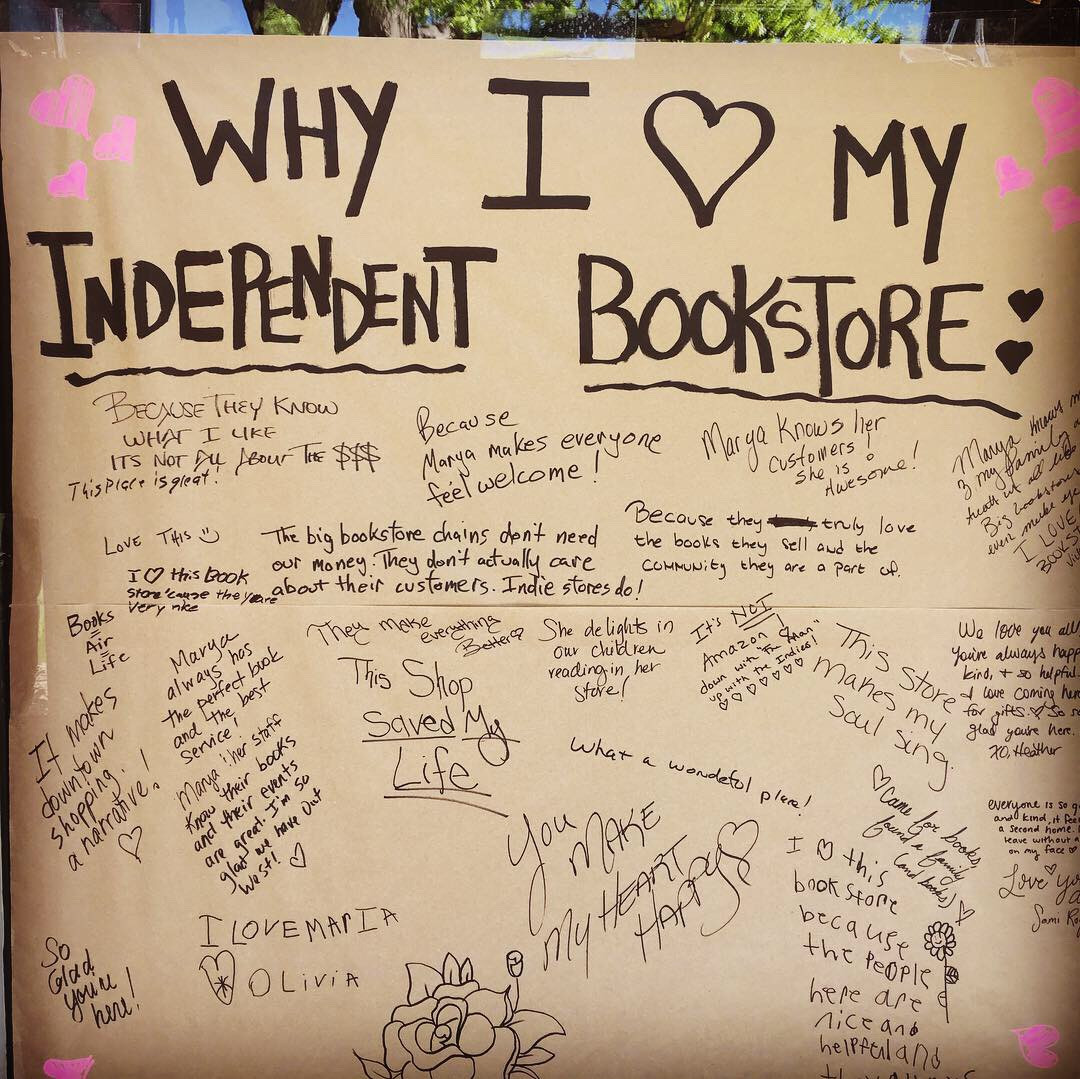 WHY I ♡ MY
INDEPENDENT BOOKSTORE:
BECAUSE THEY KNOW
WHAT I LIKE
ITS NOT ALL ABOUT THE $$$
This Place is great!
Because
Marya makes everyone
feel welcome!
Marya Knows her
customers!
She is
Awesome!
Marya knows
& my family
treat us all like
Big bookstores
even make
I LOVE
BOOKS
LOVE THIS
I ♡ this Book
Store 'cause they are
very nice
The big bookstore chains don't need
our money. They don't actually care
about their customers. Indie stores do!
Because they truly love
the books they sell and the
COMMUNITY they are a part of.
Books
=
Air
=
Life
Marya
always has
the perfect book
and the best
service!
They make everything
Better
This Shop
Saved My
Life
She delights in
our children
reading in her
Store!
It's NOT
Amazon
down with "the man"
up with the Indies!
♡♡♡♡♡♡
This store
makes my
Soul Sing.
We love you all
You're always happ
kind, + so helpful.
I love coming here
for gifts. So
glad you're here.
XO, Heather
It makes
downtown
shopping
a narrative!
♡
Marya & her staff
know their books
and their events
are great. I'm so
glad we have Out
West! ♡
What a wondeful place!
You
MAKE
My HEART
HAPPY
♡ Came for books,
found a family
(and books) ♡
everyone is so
and kind, it fee
a second home.
leave without a
on my face ♡
Love you
Sami
I ♡ this
bookstore
because
the PeoPle
here are
nice and
helPful and
I LOVE MARIA
♡ OLiviA
So
Glad
you're
here!